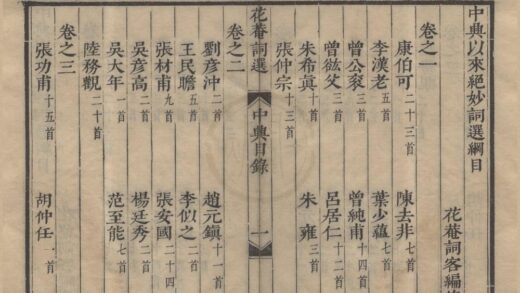 中興以來絕妙詞選綱目
花菴詞客編
卷之一
康伯可二十三首 陳去非七首
李漢老五首 葉少蘊七首
曾公袞三首 曾純甫十四首
曾紘父三首 呂居仁十二首
朱希真十首 朱雍三首
張仲宗十三首
花菴詞選 中興目錄 一
卷之二
劉彥沖二首 趙元鎮十一首
王民瞻五首 李似之二首
張材甫九首 張安國二十四
吳彥高二首 楊廷秀二首
吳大年一首 范至能七首
陸務觀二十首
卷之三
張功甫十五首 胡仲任一首